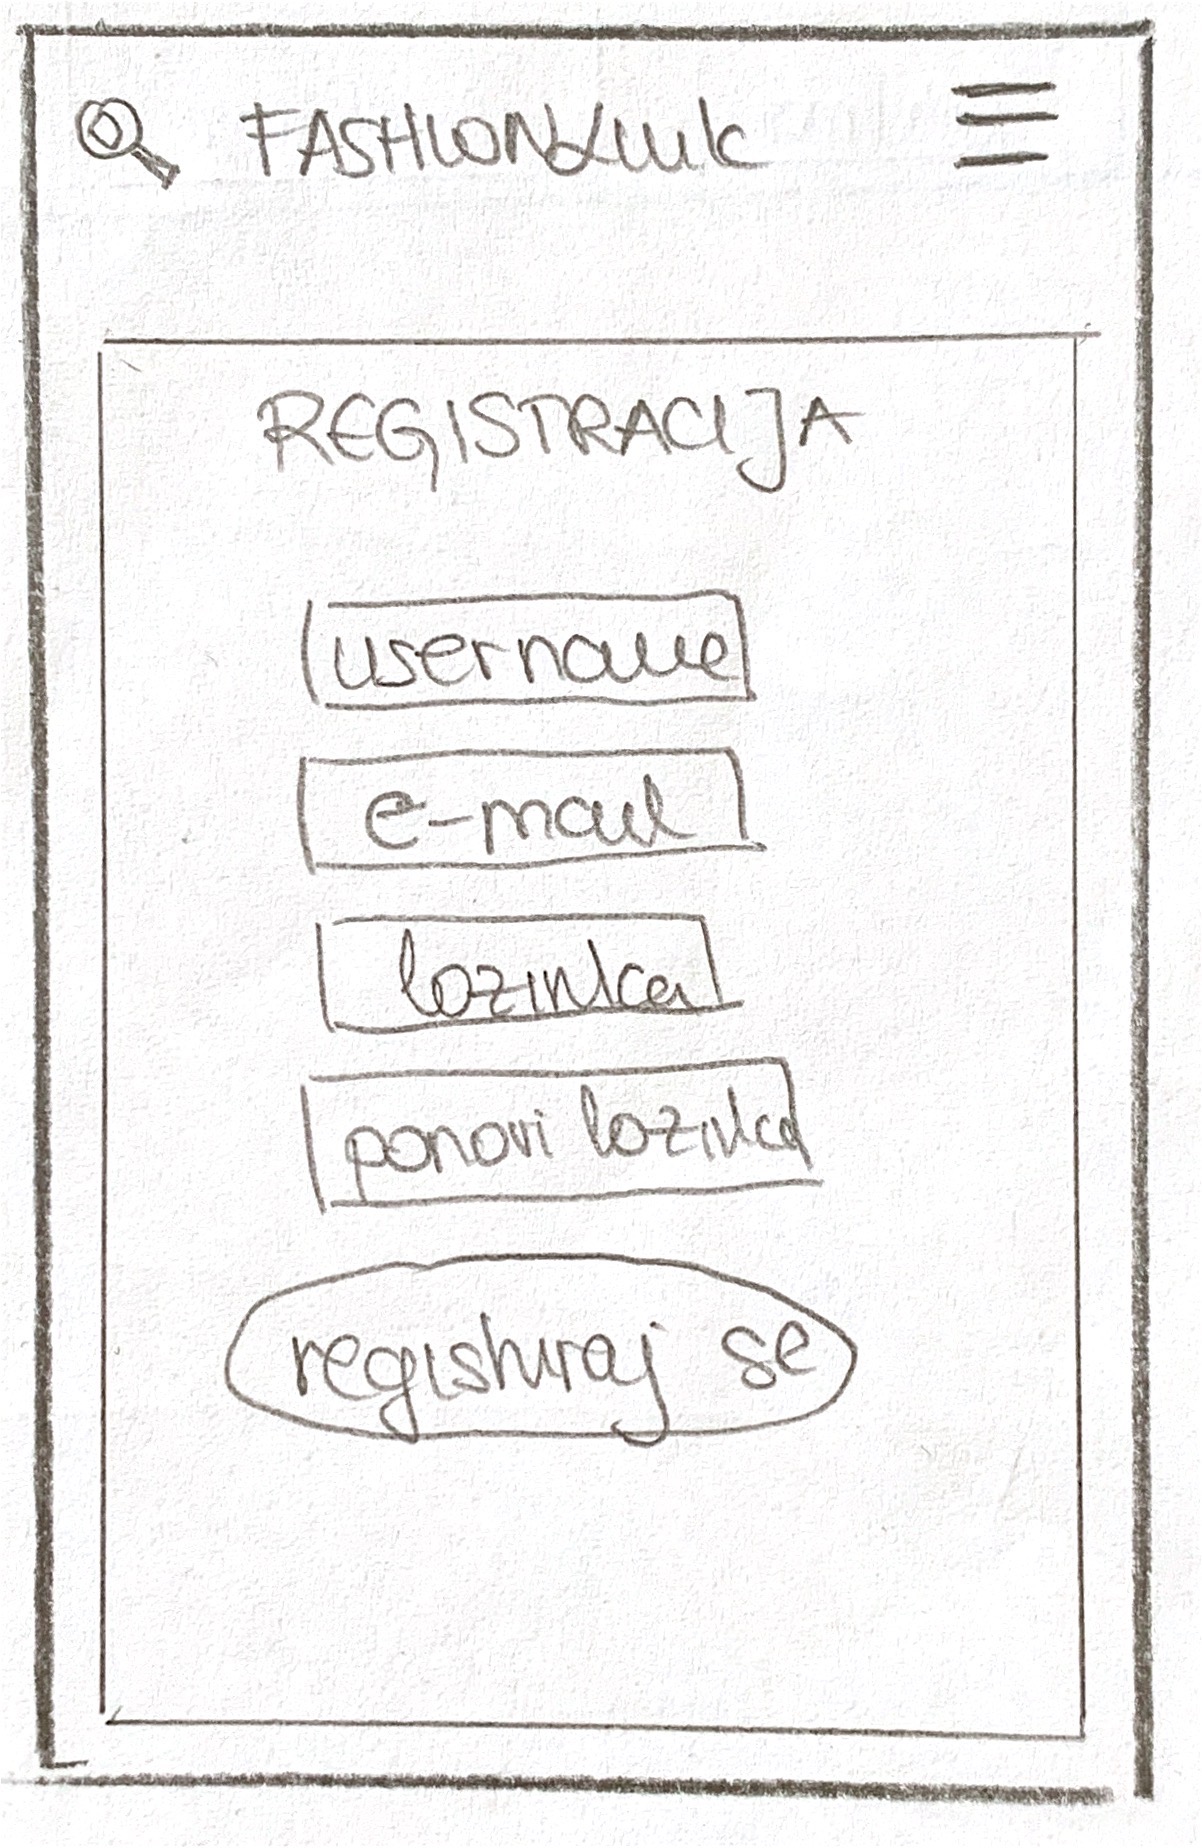 FASHIONLuk
REGISTRACIJA
username
e-mail
lozinka
ponovi lozinka
registriraj se